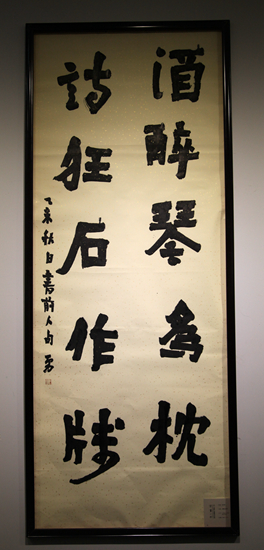 酒醉琴為枕
詩狂石作牋
乙未秋日書前人句